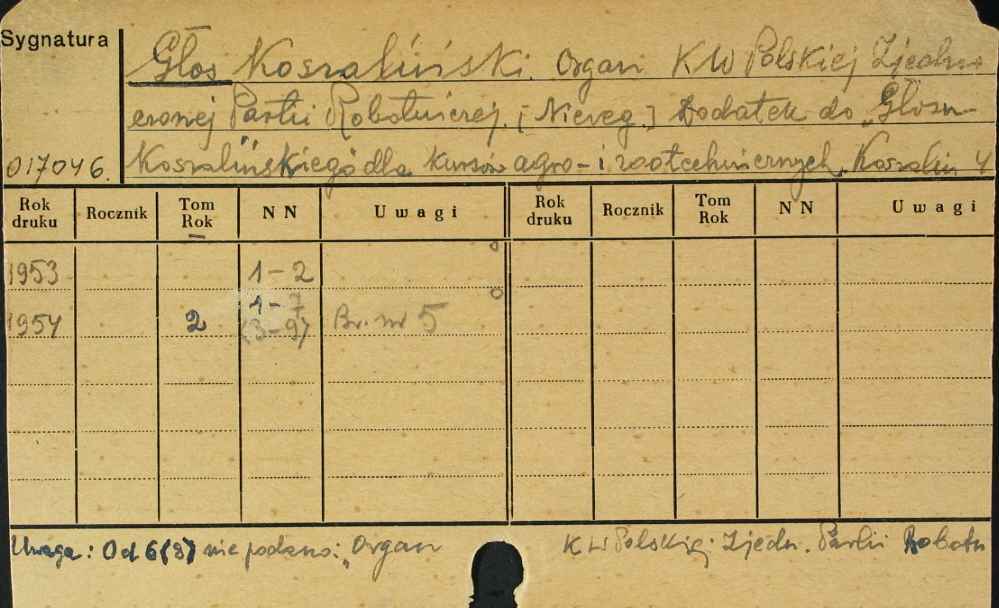 Sygnatura
Głos Koszaliński. Organ KW Polskiej Zjedno-
czonej Partii Robotniczej. [Niereg.] Dodatek do „Głosu
017046. Koszalińskiego" dla kursów agro- i zootechnicznych. Koszalin 4
Rok druku Rocznik Tom Rok NN Uwagi Rok druku Rocznik Tom Rok NN Uwagi
1953 1-2
1-7
1954 2 (3-9) Br. nr 5
Uwaga: Od 6(8) nie podano: „Organ KW Polskiej Zjedn. Partii Robotn